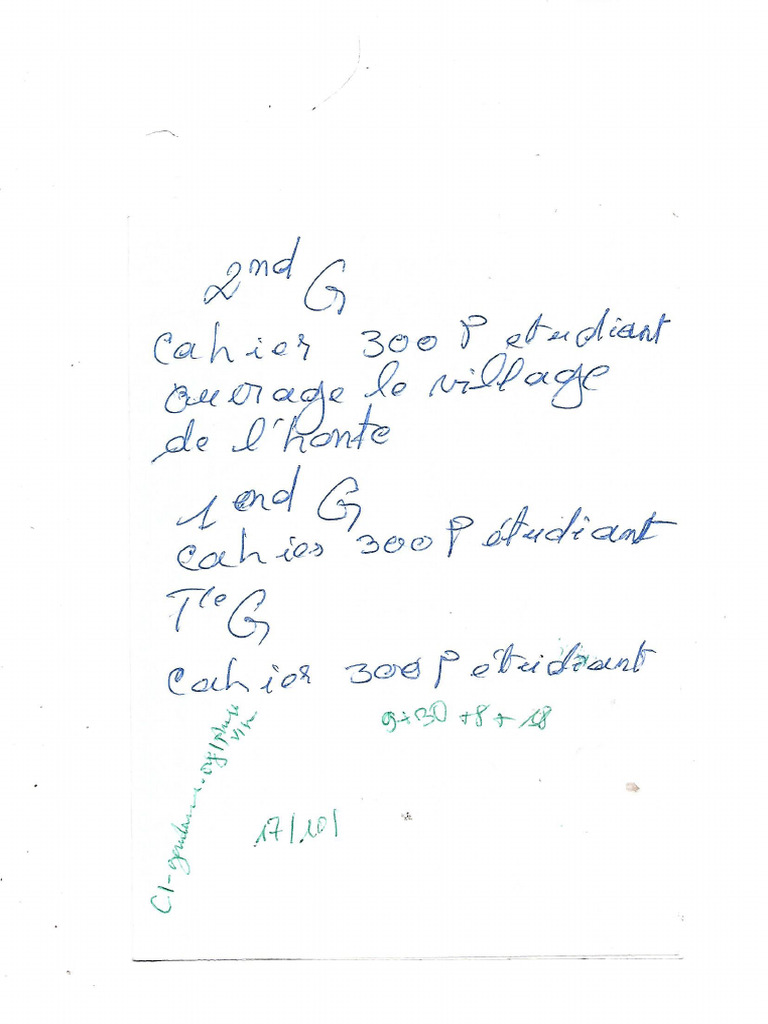 2nd G
cahier 300 P etudiant
ouvrage le village
de l'honte
1 end G
cahier 300 P étudiant
Tle G
cahier 300 P étudiant
9+30 +8 + 18
17/10/